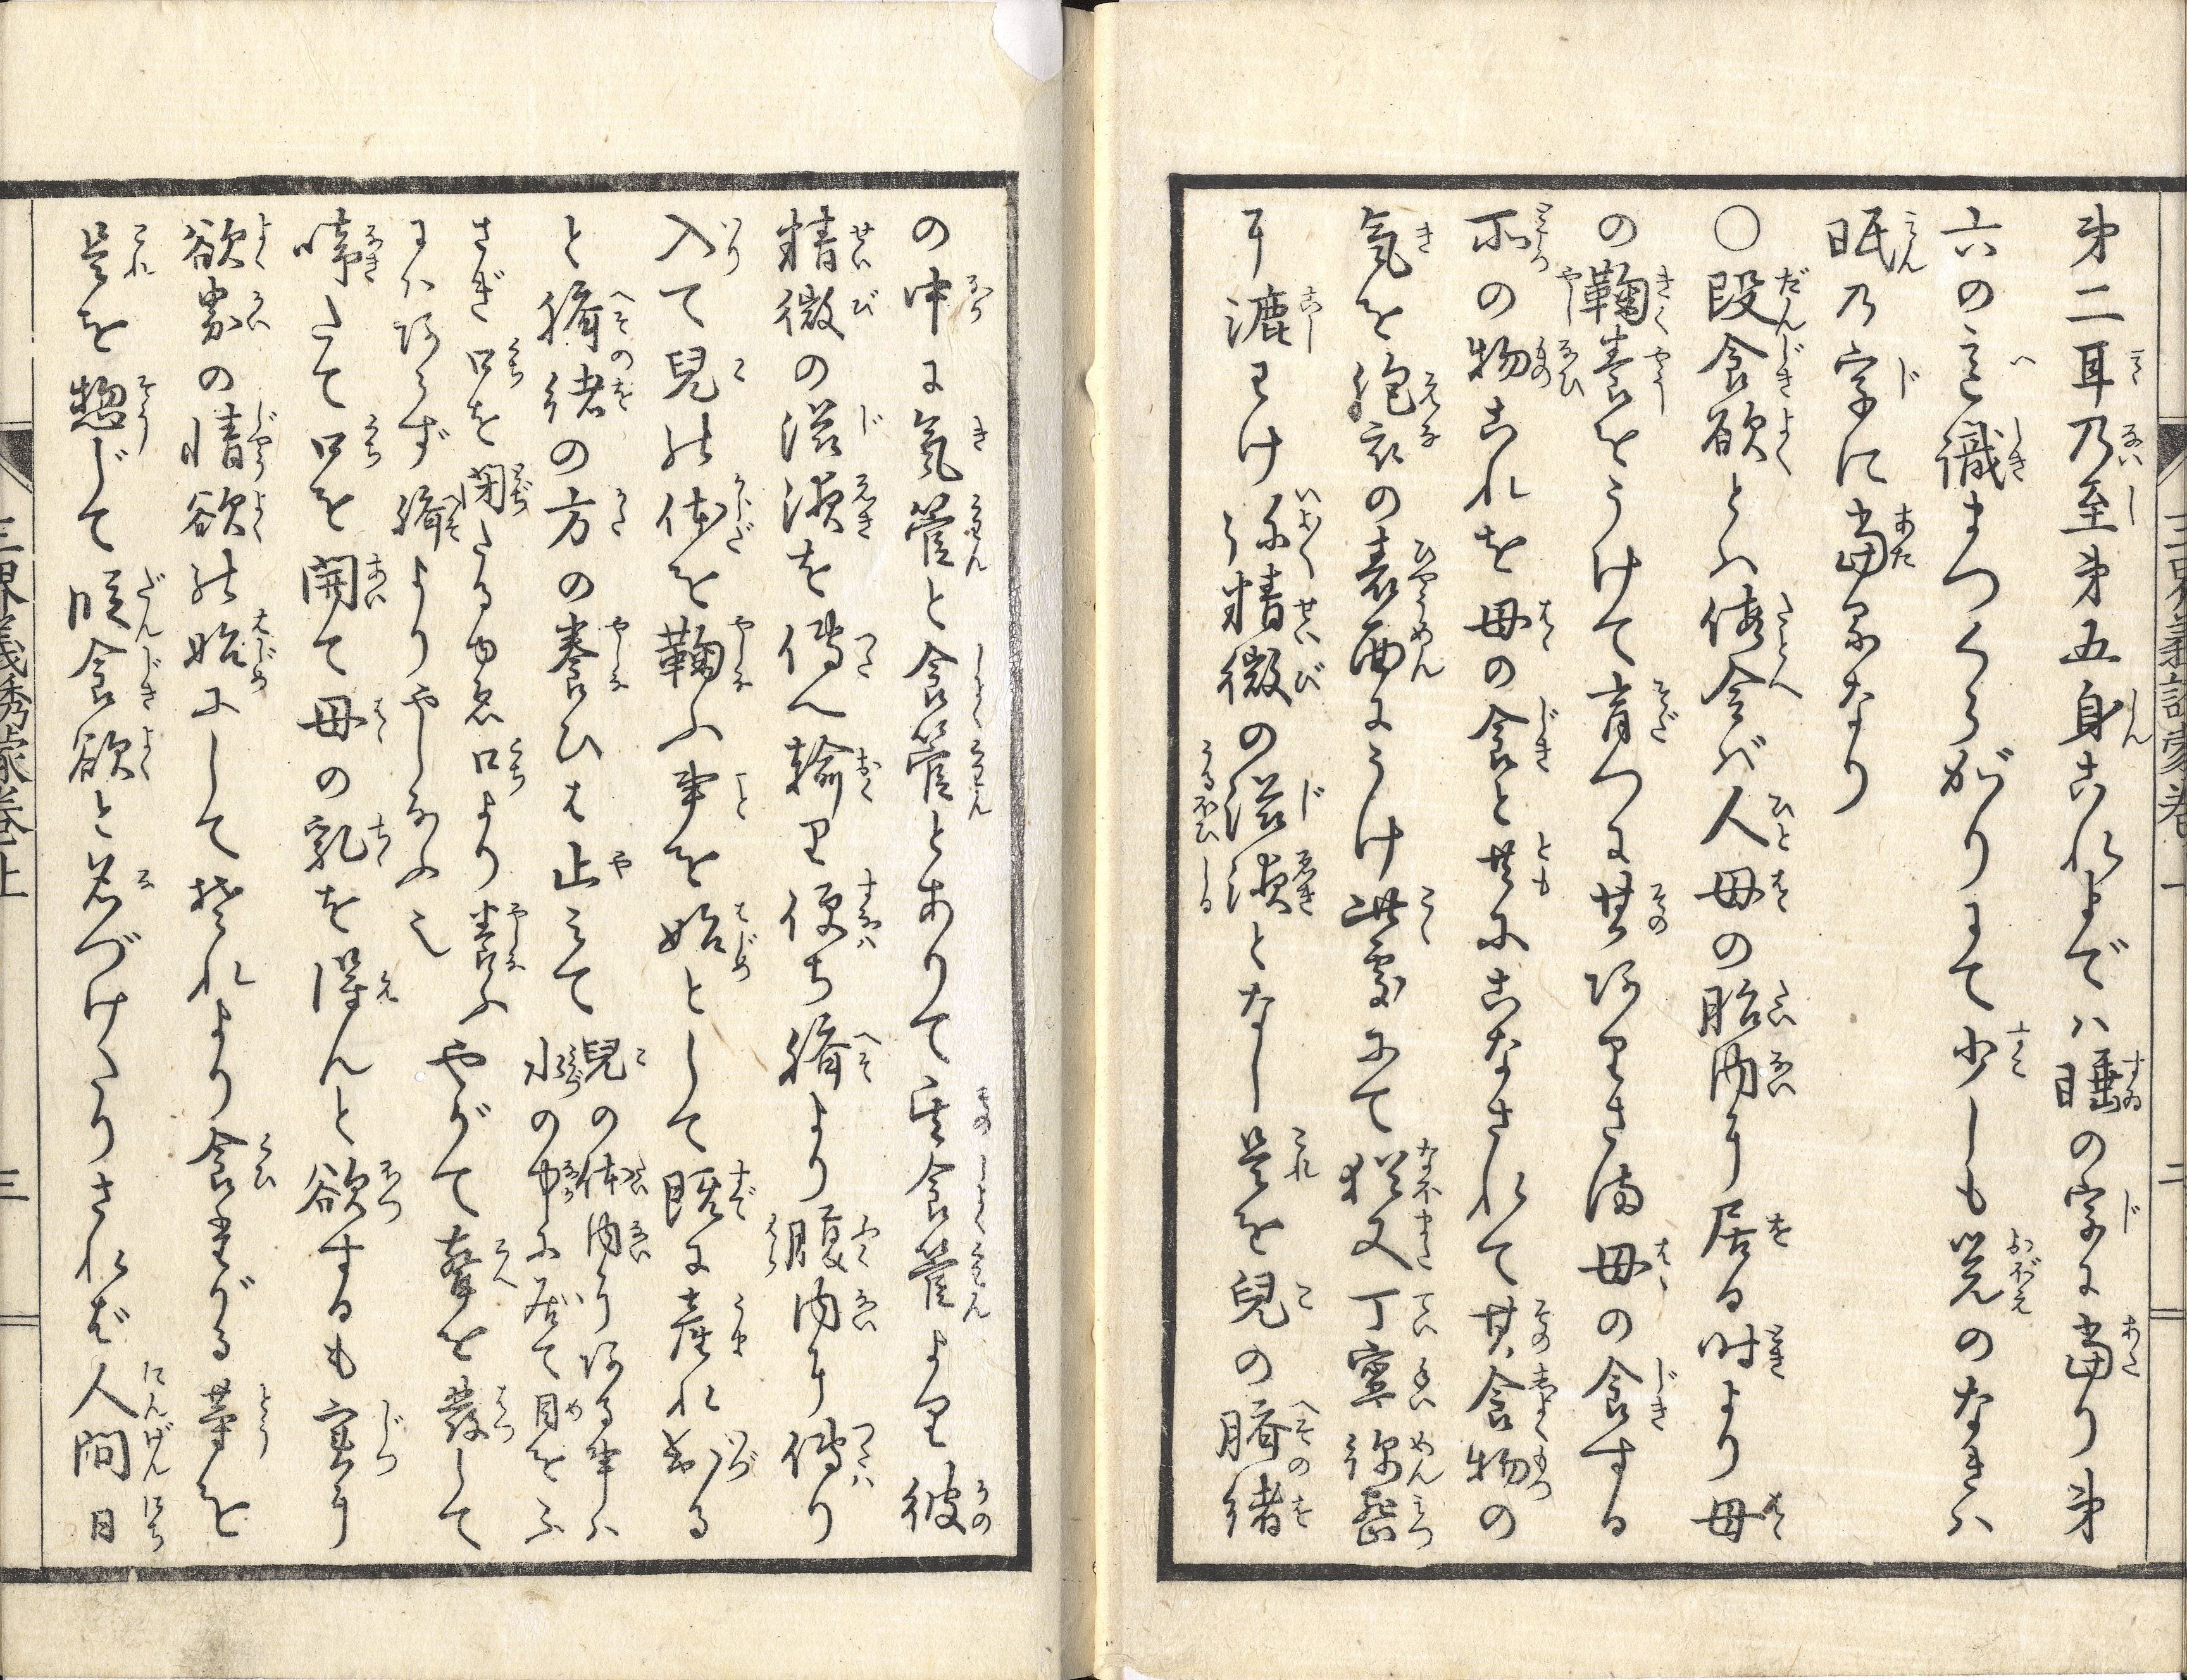 第二耳乃至第五身これまでハ睡の字に當り第
六の意識まつくらがりにて少しも覚のなきハ
眠の字に當るなり
〇段食欲とハ仮令バ人母の胎内に居る時より母
の鞠養をうけて育つに其ありさま母の食する
所の物これを母の食と共にこなされて其食物の
気を胞衣の表面にうけ此処にて猶又丁寧綿密
に漉わけ弥精微の滋液となし是を兒の臍緒
の中に気管と食管とありて其食管より彼
精微の滋液を傳へ輸り便ち臍より腹内に傳り
入て兒の体を鞠ふ事を始として既に産れ出る
と臍緒の方の養ひは止みて
兒の体内にある事ハ
水の中に居て目をふ
さぎ口を閉たるゆゑ口より養ふ
にハあらず臍よりやしなふ也
やがて聲を發して
啼たて口を開て母の乳を得んと欲するも実に
欲界の情欲の始にしてそれより食まがる等を
是を惣じて段食欲と名づけたりされば人間日
三界義誘蒙巻上
三
二